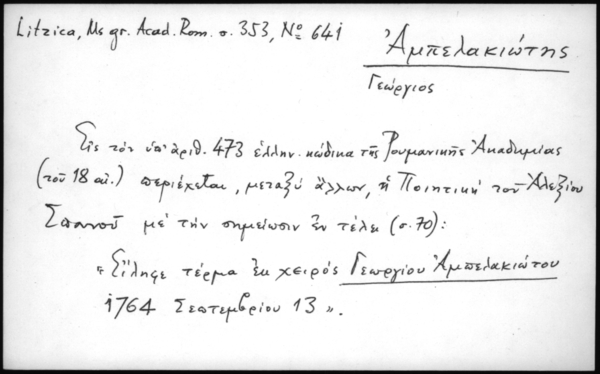 Litzica, Ms gr. Acad. Rom. σ. 353, Nº 641
Ἀμπελακιώτης
Γεώργιος
Εἰς τὸν ὑπ' ἀριθ. 473 ἑλλην. κώδικα τῆς Ρουμανικῆς Ἀκαδημίας
(τοῦ 18 αἰ.) περιέχεται, μεταξὺ ἄλλων, ἡ Ποιητικὴ τοῦ Ἀλεξίου
Σπανοῦ μὲ τὴν σημείωσιν ἐν τέλει (σ. 70):
« Εἴληφε τέρμα ἐκ χειρὸς Γεωργίου Ἀμπελακιώτου
1764 Σεπτεμβρίου 13 ».